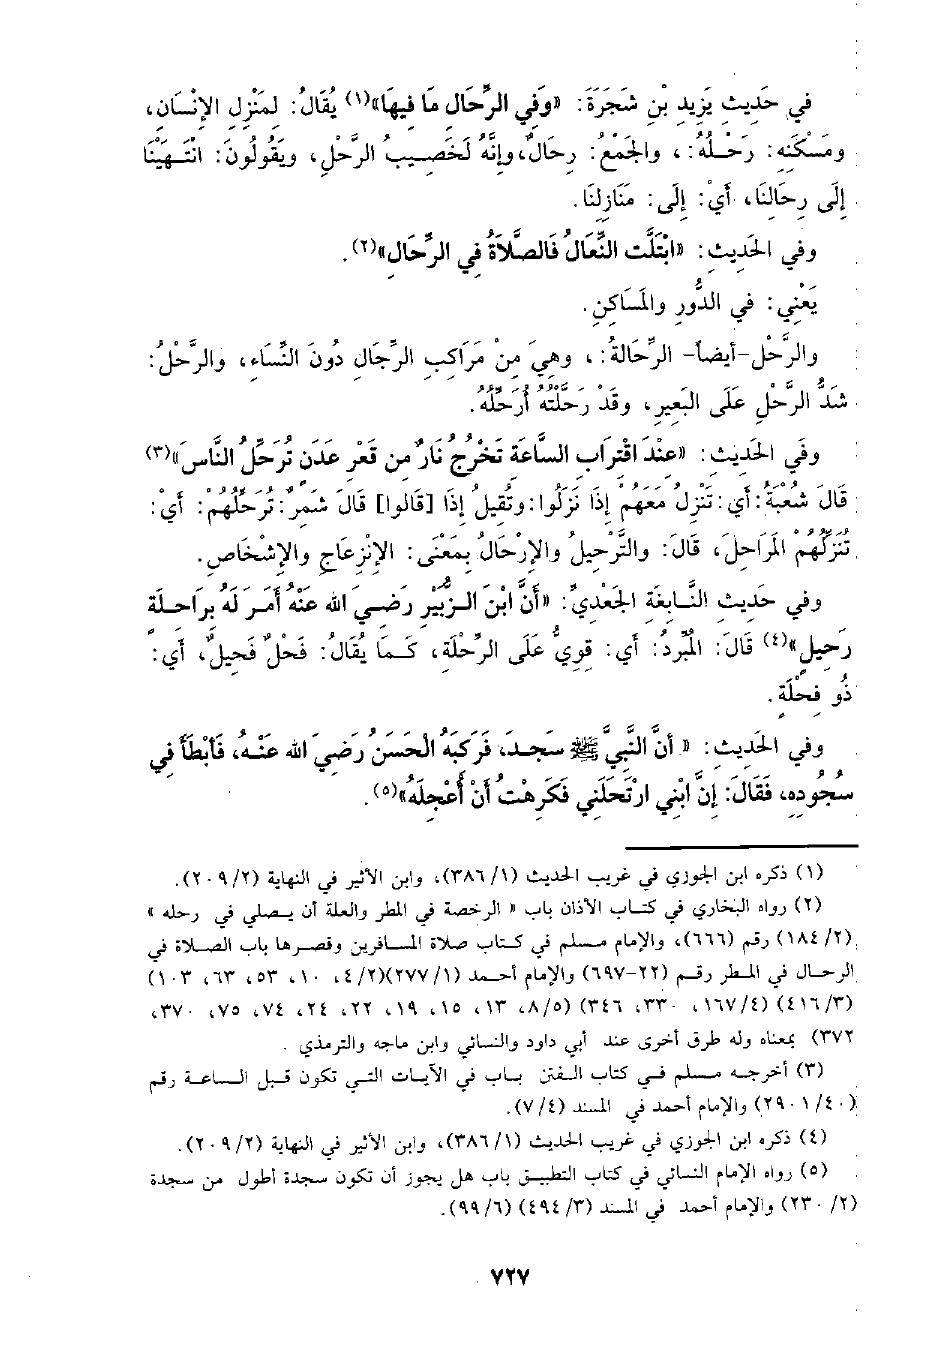 في حَدِيثِ يَزِيد بْنِ شَجَرَةَ: «وَفي الرِّحَال مَا فيهَا»(١) يُقَالُ: لمَنْزِلِ الإنْسَان،
ومَسْكَنِه: رَحْلُهُ:، والجَمْعُ: رِحَالٌ، وإنَّهُ لَخَصِيبُ الرَّحْلِ، ويَقُولُونَ: انْتَهَيْنَا
إلَى رِحَالنَا، أيْ: إلَى: مَنَازِلنَا.
وفي الحَديثِ: «ابْتَلَّت النِّعَالُ فَالصَّلاَةُ فِي الرِّحَال»(٢).
يَعْنِي: في الدُّورِ والمَسَاكِنِ.
والرَّحْل-أيضاً- الرِّحَالةُ:، وهيَ مِنْ مَرَاكِبِ الرِّجَالِ دُونَ النِّسَاءِ، والرَّحْلُ:
شَدُّ الرَّحْلِ عَلَى البَعيرِ، وقَدْ رَحَلْتُهُ أرْحَلُهُ.
وفَي الحَديث: «عنْدَ اقْترَاب السَّاعَة تَخْرُجُ نَارٌ من قَعْر عَدَن تُرَحِّلُ النَّاسَ»(٣)
قَالَ شُعْبَةُ: أي: تَنْزِلُ مَعَهُمْ إذَا نَزَلُوا: وتُقيلُ إذَا [قالوا] قَالَ شَمِرٌ: تُرَحِّلُهُمْ: أيْ:
تُنَزِّلُهُمْ المَرَاحِلَ، قَالَ: والتَّرْحِيلُ والإرْحَالُ بِمَعْنَى: الإنْزِعَاجِ والإشْخَاصِ.
وفي حَديث النَّابغَة الجَعْديِّ: «أنَّ ابْنَ الزُّبَيْر رَضيَ الله عَنْهُ أمَرَ لَهُ برَاحلَة
رَحيلٍ»(٤) قَالَ: المُبَرِّدُ: أي: قوِيٌّ عَلَى الرِّحْلَةِ، كَما يُقَالُ: فَحْلٌ فَحيلٌ، أي:
ذُو فحْلَةٍ.
وفي الحَديث: « أنَّ النَّبيَّ ﷺ سَجدَ، فَرَكبَهُ الْحَسَنُ رَضيَ الله عَنْهُ، فَأبْطَأَ في
سُجُودِهِ، فَقَالَ: إنَّ ابْنِي ارْتَحَلَني فَكَرِهْتُ أنْ أُعْجلَهُ»(٥).
(١) ذكره ابن الجوزي في غريب الحديث (٣٨٦/١)، وابن الأثير في النهاية (٢٠٩/٢).
(٢) رواه البخاري في كتاب الأذان باب « الرخصة في المطر والعلة أن يصلي في رحله »
(١٨٤/٢) رقم (٦٦٦)، والإمام مسلم في كتاب صلاة المسافرين وقصرها باب الصلاة في
الرحال في المطر رقم (٢٢-٦٩٧) والإمام أحمد (٢٧٧/١)(٤/٢، ١٠، ٥٣، ٦٣، ١٠٣)
(٤١٦/٣) (١٦٧/٤، ٣٣٠، ٣٤٦) (٨/٥، ١٣، ١٥، ١٩، ٢٢، ٢٤، ٧٤، ٧٥، ٣٧٠،
٣٧٢) بمعناه وله طرق أخرى عند أبي داود والنسائي وابن ماجه والترمذي .
(٣) أخرجه مسلم في كتاب الفتن باب في الآيات التي تكون قبل الساعة رقم
(٢٩٠١/٤٠) والإمام أحمد في المسند (٧/٤).
(٤) ذكره ابن الجوزي في غريب الحديث (٣٨٦/١)، وابن الأثير في النهاية (٢٠٩/٢).
(٥) رواه الإمام النسائي في كتاب التطبيق باب هل يجوز أن تكون سجدة أطول من سجدة
(٢٣٠/٢) والإمام أحمد في المسند (٤٩٤/٣) (٩٩/٦).
٧٢٧